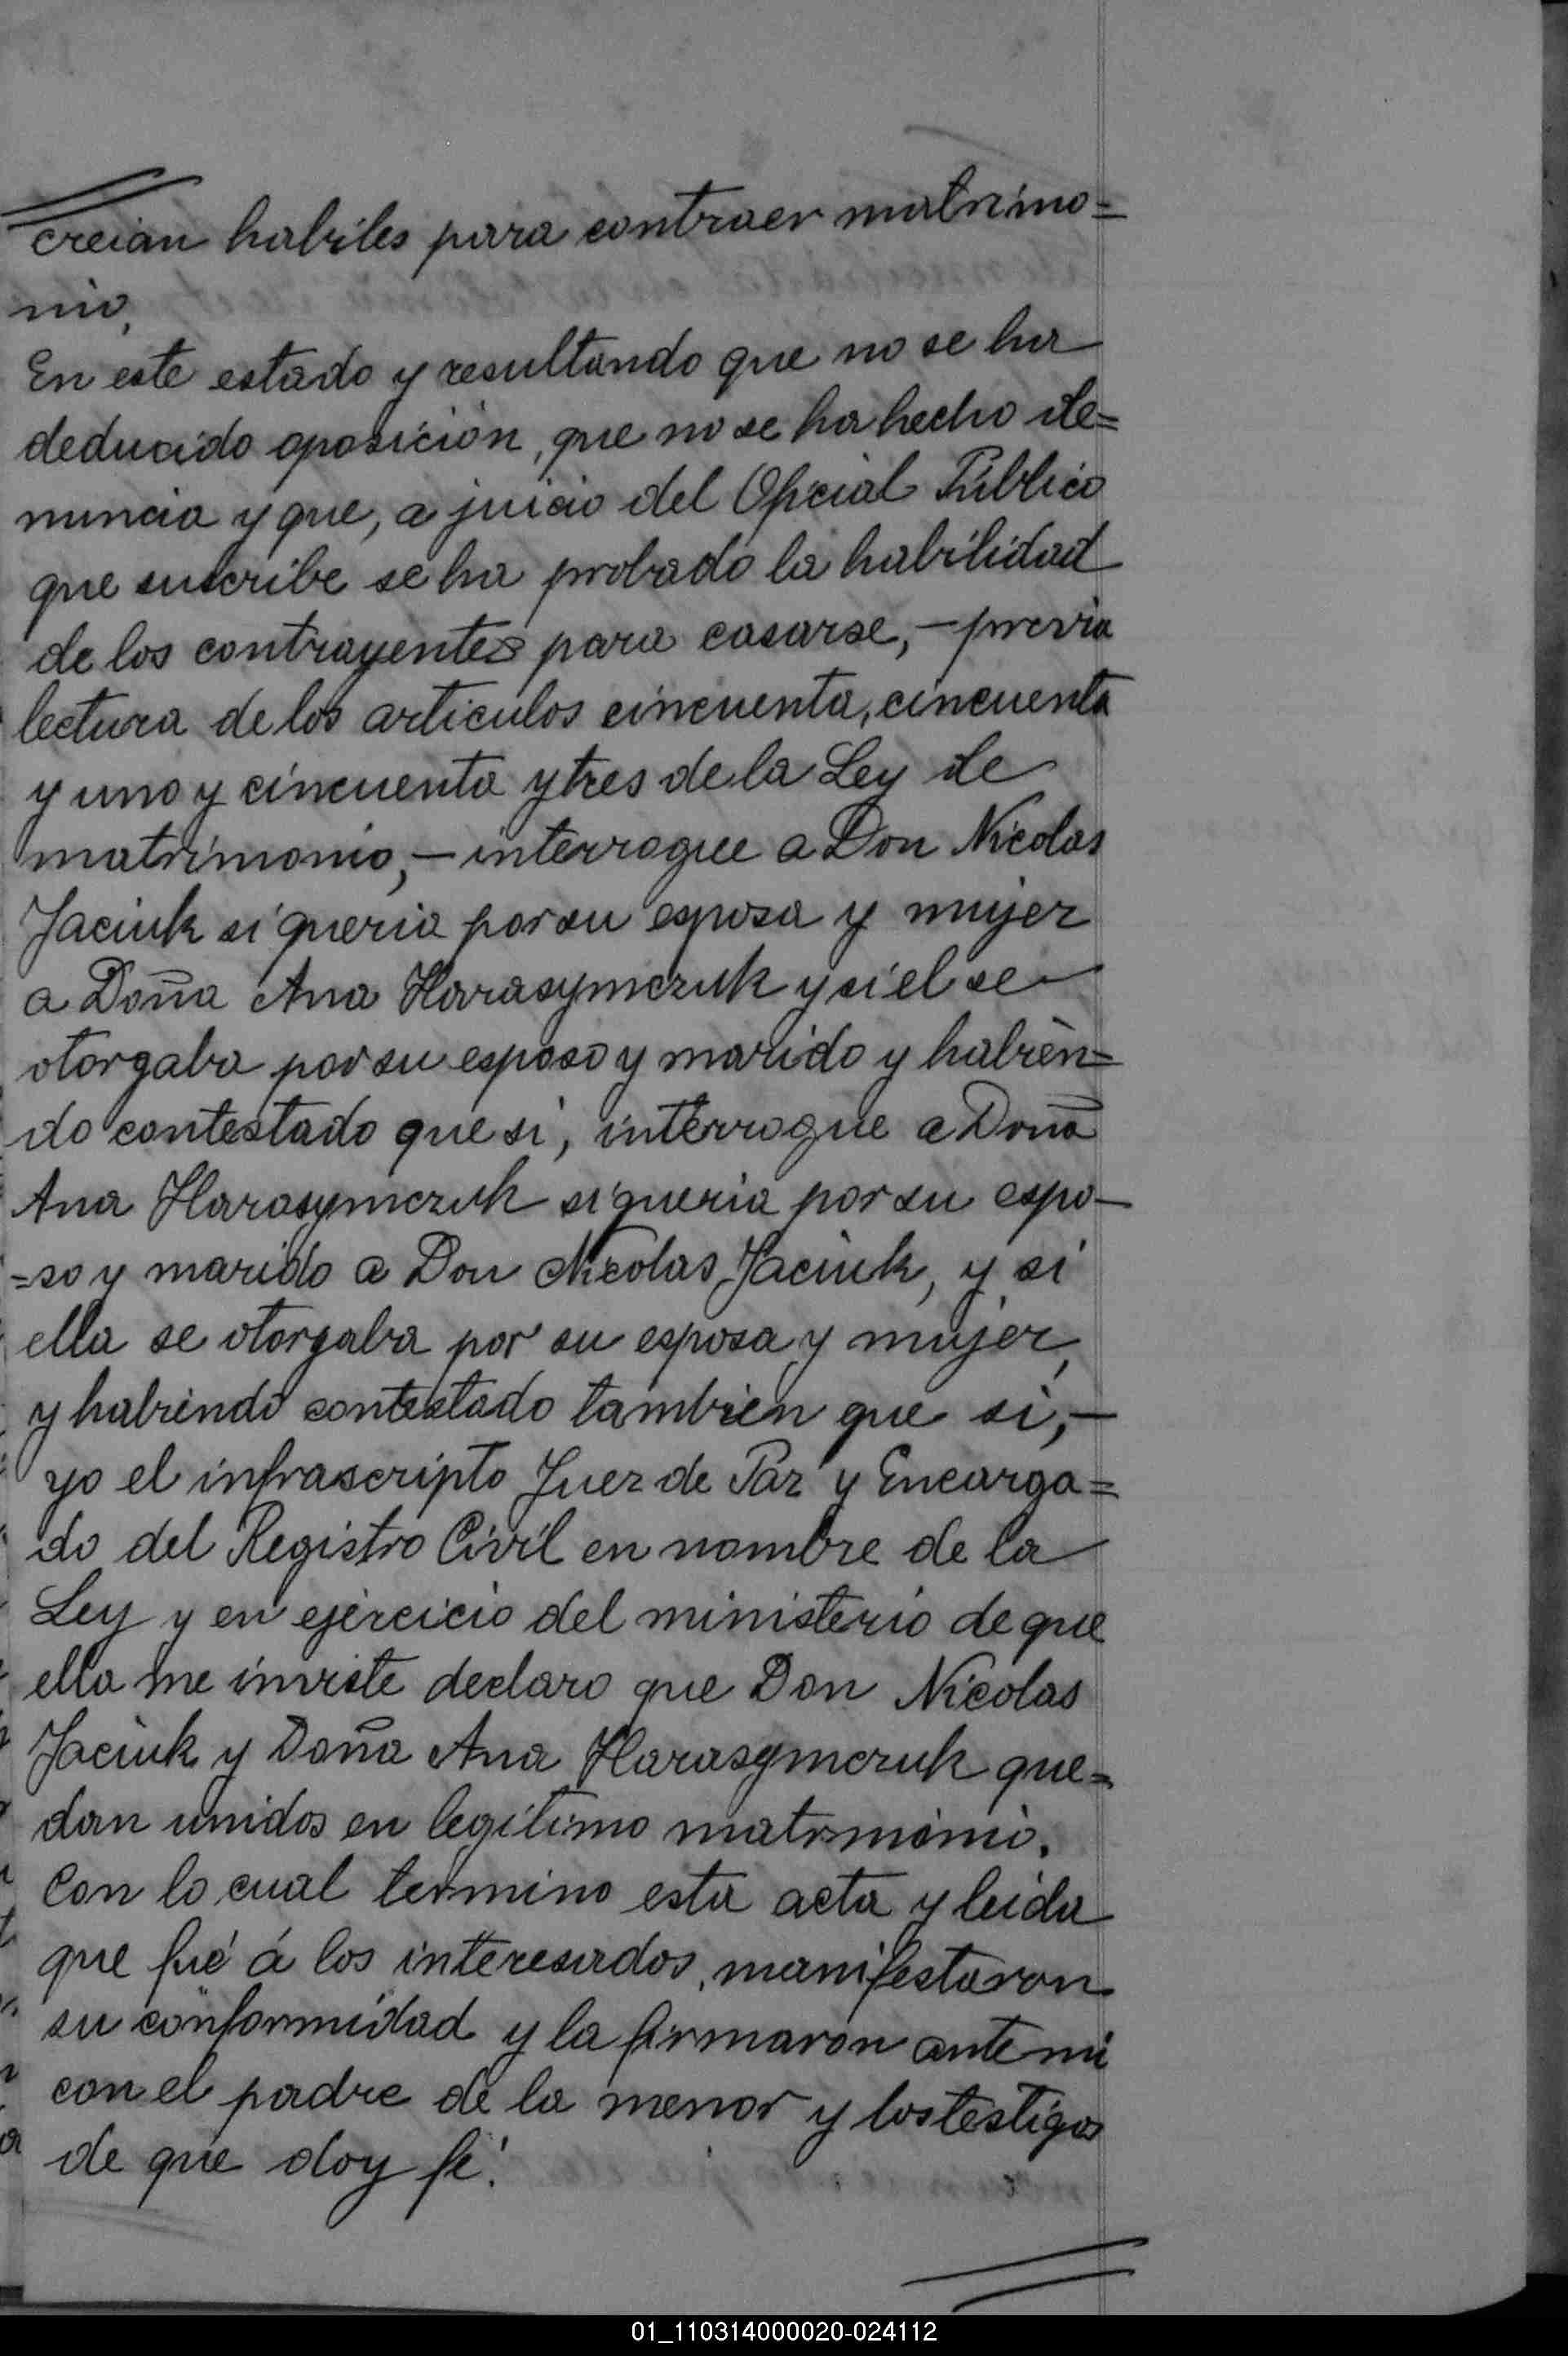 creian habiles para contraer matrimo=
nio,
En este estado y resultando que no se ha
deducido oposición, que no se ha hecho de=
nuncia y que, a juicio del Oficial Público
que suscribe se ha probado la habilidad
de los contrayentes para casarse, — previa
lectura de los articulos cincuenta, cincuenta
y uno y cincuenta y tres de la Ley de
matrimonio, — interrogue a Don Nicolas
Jaciuk si queria por su esposa y mujer
a Doña Ana Harasymczuk y si el se
otorgaba por su esposo y marido y habién=
do contestado que si, interrogue a Doña
Ana Harasymczuk si queria por su espo-
=so y marido a Don Nicolas Jaciuk, y si
ella se otorgaba por su esposa y mujer,
y habiendo contestado tambien que si, —
yo el infrascripto Juez de Paz y Encarga=
do del Registro Civil en nombre de la
Ley y en ejercicio del ministerio de que
ella me inviste declaro que Don Nicolas
Jaciuk y Doña Ana Harasymczuk que=
dan unidos en legítimo matrimonio.
Con lo cual termino esta acta y leida
que fué á los interesados, manifestaron
su conformidad y la firmaron ante mi
con el padre de la menor y los testigos
de que doy fé.
01_110314000020-024112